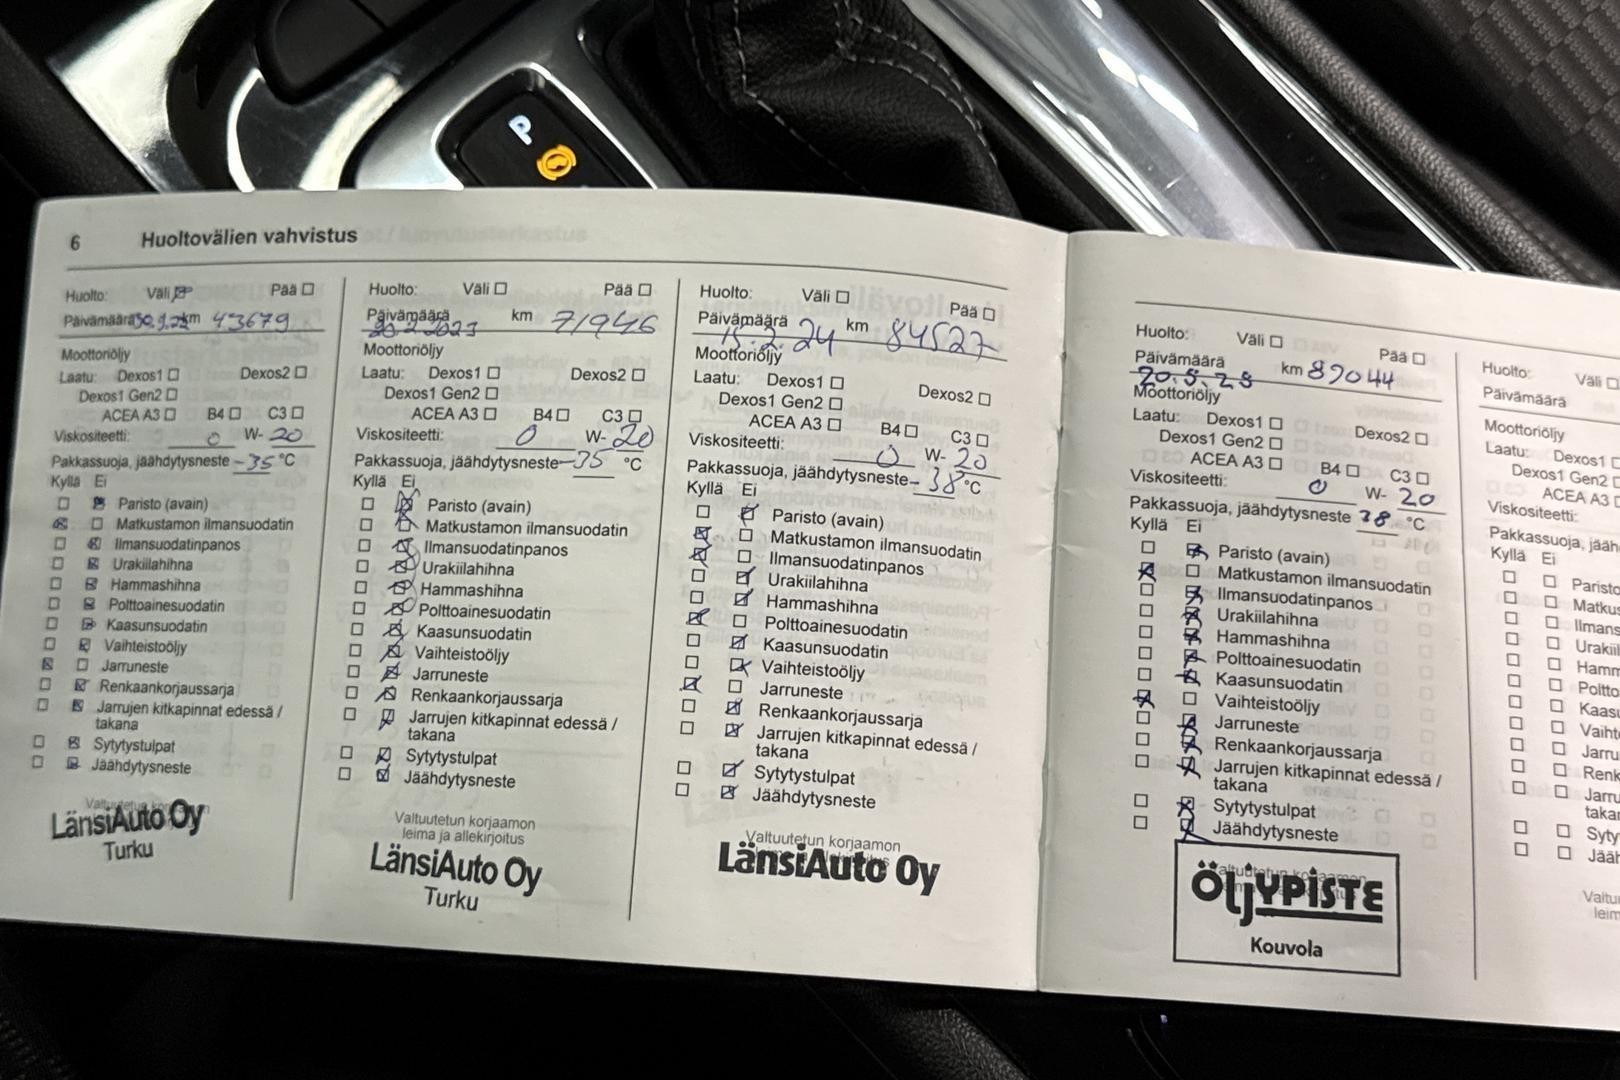 P
6 Huoltovälien vahvistus
Huolto: Väli Pää
Päivämäärä km 43679
Moottoriöljy
Laatu: Dexos1 Dexos2
Dexos1 Gen2
ACEA A3 B4 C3
Viskositeetti: 0 W- 20
Pakkassuoja, jäähdytysneste -35 °C
Kyllä Ei
Paristo (avain)
Matkustamon ilmansuodatin
Ilmansuodatinpanos
Urakiilahihna
Hammashihna
Polttoainesuodatin
Kaasunsuodatin
Vaihteistoöljy
Jarruneste
Renkaankorjaussarja
Jarrujen kitkapinnat edessä /
takana
Sytytystulpat
Jäähdytysneste
LänsiAuto Oy
Turku
Huolto: Väli Pää
Päivämäärä 20.2.2023 km 71946
Moottoriöljy
Laatu: Dexos1 Dexos2
Dexos1 Gen2
ACEA A3 B4 C3
Viskositeetti: 0 W- 20
Pakkassuoja, jäähdytysneste -35 °C
Kyllä Ei
Paristo (avain)
Matkustamon ilmansuodatin
Ilmansuodatinpanos
Urakiilahihna
Hammashihna
Polttoainesuodatin
Kaasunsuodatin
Vaihteistoöljy
Jarruneste
Renkaankorjaussarja
Jarrujen kitkapinnat edessä /
takana
Sytytystulpat
Jäähdytysneste
Valtuutetun korjaamon
leima ja allekirjoitus
LänsiAuto Oy
Turku
Huolto: Väli Pää
Päivämäärä 15.2.24 km 84527
Moottoriöljy
Laatu: Dexos1 Dexos2
Dexos1 Gen2
ACEA A3 B4 C3
Viskositeetti: 0 W- 20
Pakkassuoja, jäähdytysneste -38 °C
Kyllä Ei
Paristo (avain)
Matkustamon ilmansuodatin
Ilmansuodatinpanos
Urakiilahihna
Hammashihna
Polttoainesuodatin
Kaasunsuodatin
Vaihteistoöljy
Jarruneste
Renkaankorjaussarja
Jarrujen kitkapinnat edessä /
takana
Sytytystulpat
Jäähdytysneste
Valtuutetun korjaamon
LänsiAuto Oy
Huolto: Väli Pää
Päivämäärä km 89044
Moottoriöljy
Laatu: Dexos1 Dexos2
Dexos1 Gen2
ACEA A3 B4 C3
Viskositeetti: 0 W- 20
Pakkassuoja, jäähdytysneste 38 °C
Kyllä Ei
Paristo (avain)
Matkustamon ilmansuodatin
Ilmansuodatinpanos
Urakiilahihna
Hammashihna
Polttoainesuodatin
Kaasunsuodatin
Vaihteistoöljy
Jarruneste
Renkaankorjaussarja
Jarrujen kitkapinnat edessä /
takana
Sytytystulpat
Jäähdytysneste
ÖLJYPISTE
Kouvola
Huolto: Väli
Päivämäärä
Moottoriöljy
Laatu: Dexos1
Dexos1 Gen2
ACEA A3
Viskositeetti:
Pakkassuoja, jääh
Kyllä Ei
Paristo
Matkus
Ilmans
Urakiil
Hamm
Polttoa
Kaasu
Vaihte
Jarru
Renk
Jarru
taka
Syty
Jääh
Valtu
leim